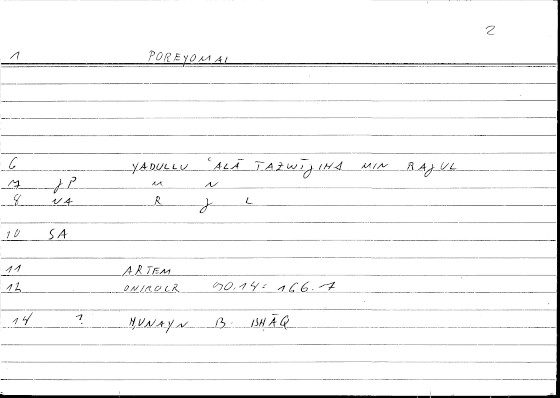 2
1 POREYOMAI
6 YADULLU ʿALĀ TAZWĪǧIHA MIN RAǧUL
7 ǧP M N
8 VA R ǧ L
10 SA
11 ARTEM
12 ONIROCR 90.14 = 166.7
14 ? ḤUNAYN B. ISḤĀQ